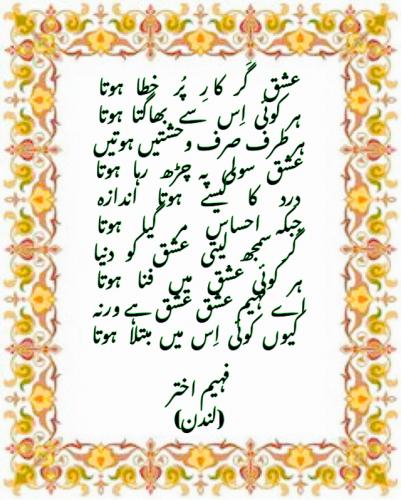 عشق گَر کارِ پُر خطا ہوتا
ہر کوئی اِس سے بھاگتا ہوتا
ہر طرف صرف وحشتیں ہوتیں
عشق سولی پہ چڑھ رہا ہوتا
درد کا کیسے ہوتا اندازہ
جبکہ احساس مر گیا ہوتا
گر سمجھ لیتی عشق کو دنیا
ہر کوئی عشق میں فنا ہوتا
اے فہیم عشق عشق ہے ورنہ
کیوں کوئی اِس میں مبتلا ہوتا
فہیم اختر
(لندن)